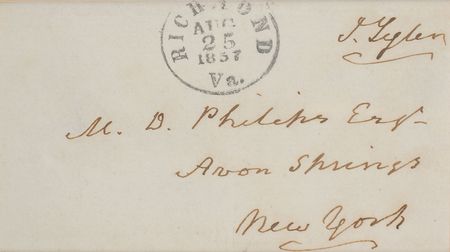 RICHMOND
AUG
25
1857
Va.
J. Tyler
M. D. Philips Esqr
Avon Springs
New York